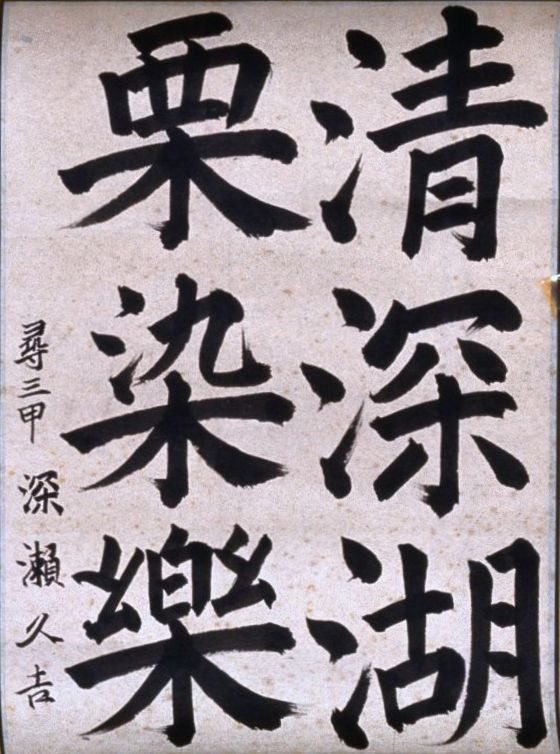 清深湖
栗染樂
尋三甲 深瀬久吉